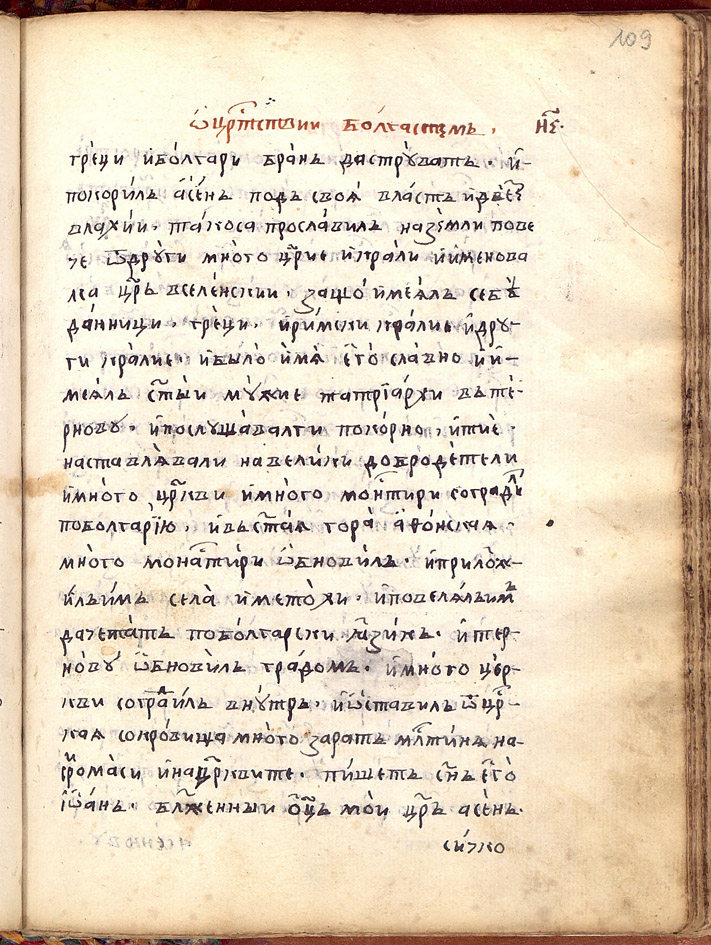 109
Ѡ црⷭ҇твіи болгасцѣмъ. н҃ѕ.
греци и болгари брань да стрꙋватъ. и-
покорилъ асень подъ своѧ власть и двѣ
влахїи. такоса прославилъ на земли пове
че ѿ дрꙋги много цр҃ие и крали и именова
лса цр҃ь вселенскии. защо имеѧлъ себѣ
данници. греци. и римски кралие и дрꙋ-
ги кралие. и было имѧ его славно и и-
меѧлъ ст҃ыи мꙋжие патрїархи въ те-
рновꙋ. и послꙋшавалги покорно. и тие.
наставлѧвали на велики добродетели
и много црк҃ви и много монⷭ҇тири согради
по болгарїю. и въ ст҃аѧ гора аѳонскаѧ.
много монаⷭ҇тири ѡбновилъ. и прилож-
илъ имъ села и метохи. и повелѧлъ имъ
да четатъ по болгарски ꙗзикъ. и тер-
новꙋ ѡбновилъ градомъ. и много цер-
кви сограⷣилъ внꙋтръ. и ѡставилъ ѿ црⷭ҇-
каѧ сокровища много заратъ млⷭ҇тинѧ на-
сⷬ҇ромаси и на црк҃вите. пишетъ сн҃ъ его
іѡанъ. бл҃женныи ѻц҃ъ мои цр҃ь асень.
сичко